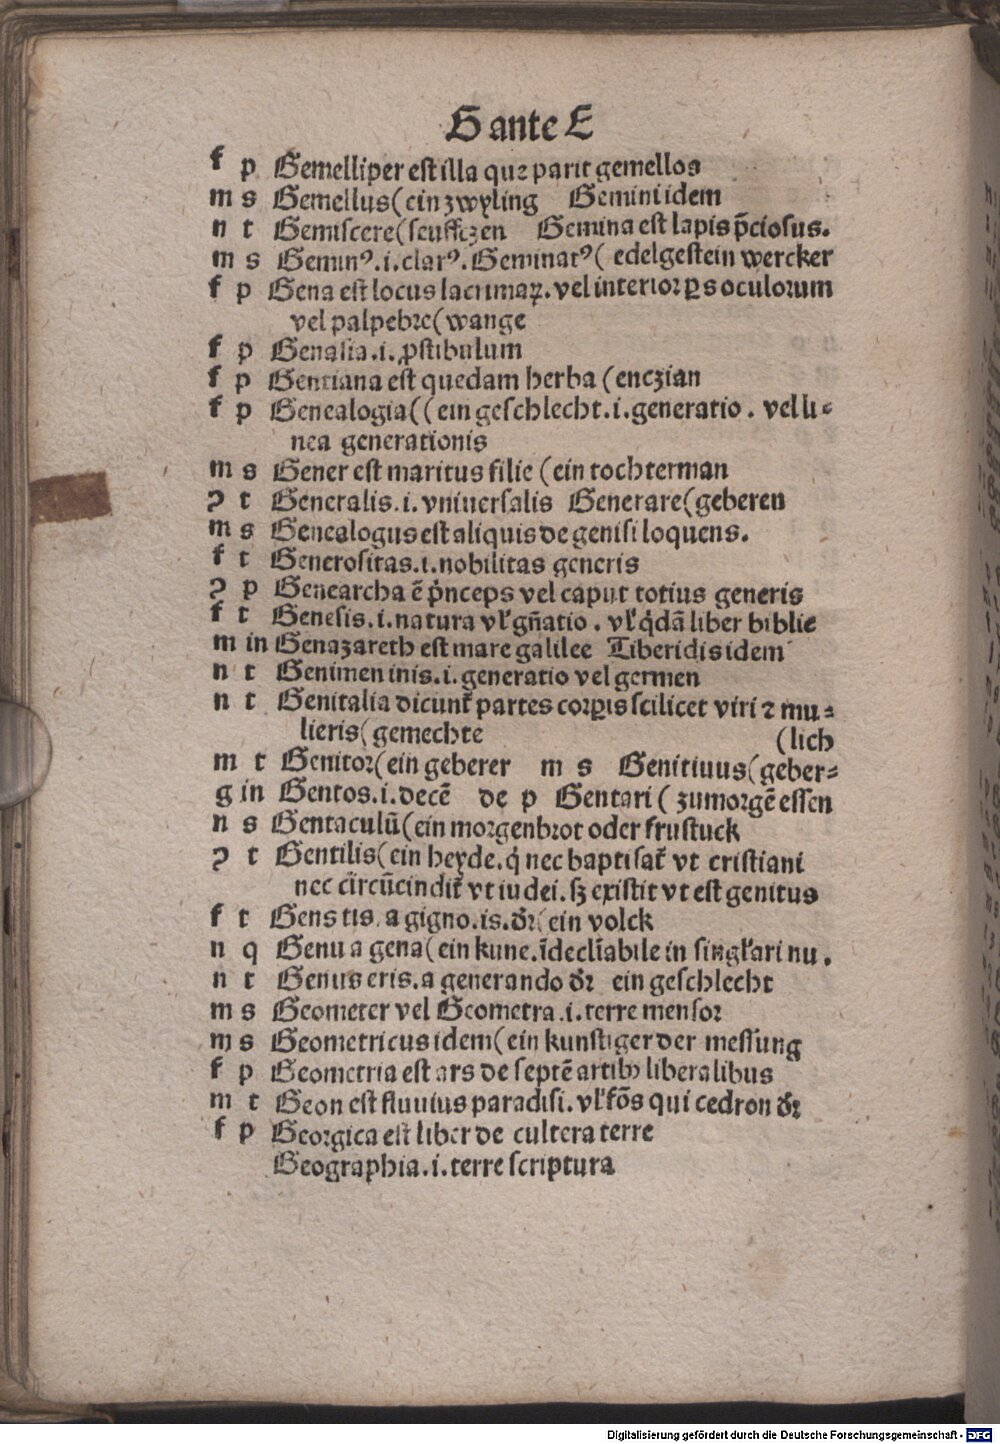 G ante E
f p Gemelliper est illa que parit gemellos
m s Gemellus(ein zwyling Gemini idem
n t Gemiscere(seufftzen Gemma est lapis p̄ciosus.
m s Geminꝰ.i.clarꝰ.Geminatꝰ( edelgestein wercker
f p Gena est locus lacrimaꝝ.vel interior ꝑs oculorum
vel palpebre(wange
f p Genalia.i.ꝓstibulum
f p Gentiana est quedam herba (enczian
f p Genealogia((ein geschlecht.i.generatio. vel li⸗
nea generationis
m s Gener est maritus filie (ein tochterman
ꝯ t Generalis.i.vniuersalis Generare(geberen
m s Genealogus est aliquis de genisi loquens.
f t Generositas.i.nobilitas generis
ꝯ p Genearcha ē pͥnceps vel caput totius generis
f t Genesis.i.natura vl̓ gn̄atio. vl̓ q̓dā liber biblie
m in Genazareth est mare galilee Tiberidis idem
n t Genimen inis.i.generatio vel germen
n t Genitalia dicunt̓ partes corꝑis scilicet viri ⁊ mu⸗
lieris(gemechte (lich
m t Genitor(ein geberer m s Genitiuus(geber⸗
g in Gentos.i.decē de p Gentari( zumorgē essen
n s Gentaculū(ein morgenbrot oder frustuck
ꝯ t Gentilis(ein heyde.q̓ nec baptisat̓ vt cristiani
nec circūcindit̓ vt iudei.sꝫ existit vt est genitus
f t Gens tis.a gigno.is.dr̄(ein volck
n q Genu a gena(ein kune.īdeclīabile in singl̓ari nu.
n t Genus eris.a generando dr̄ ein geschlecht
m s Geometer vel Geometra.i.terre mensor
m s Geometricus idem(ein kunstiger der messung
f p Geometria est ars de septē artibꝫ liberalibus
m t Geon est fluuius paradisi.vl̓ fōs qui cedron dr̄
f p Georgica est liber de cultera terre
Geographia.i.terre scriptura
Digitalisierung gefördert durch die Deutsche Forschungsgemeinschaft - DFG